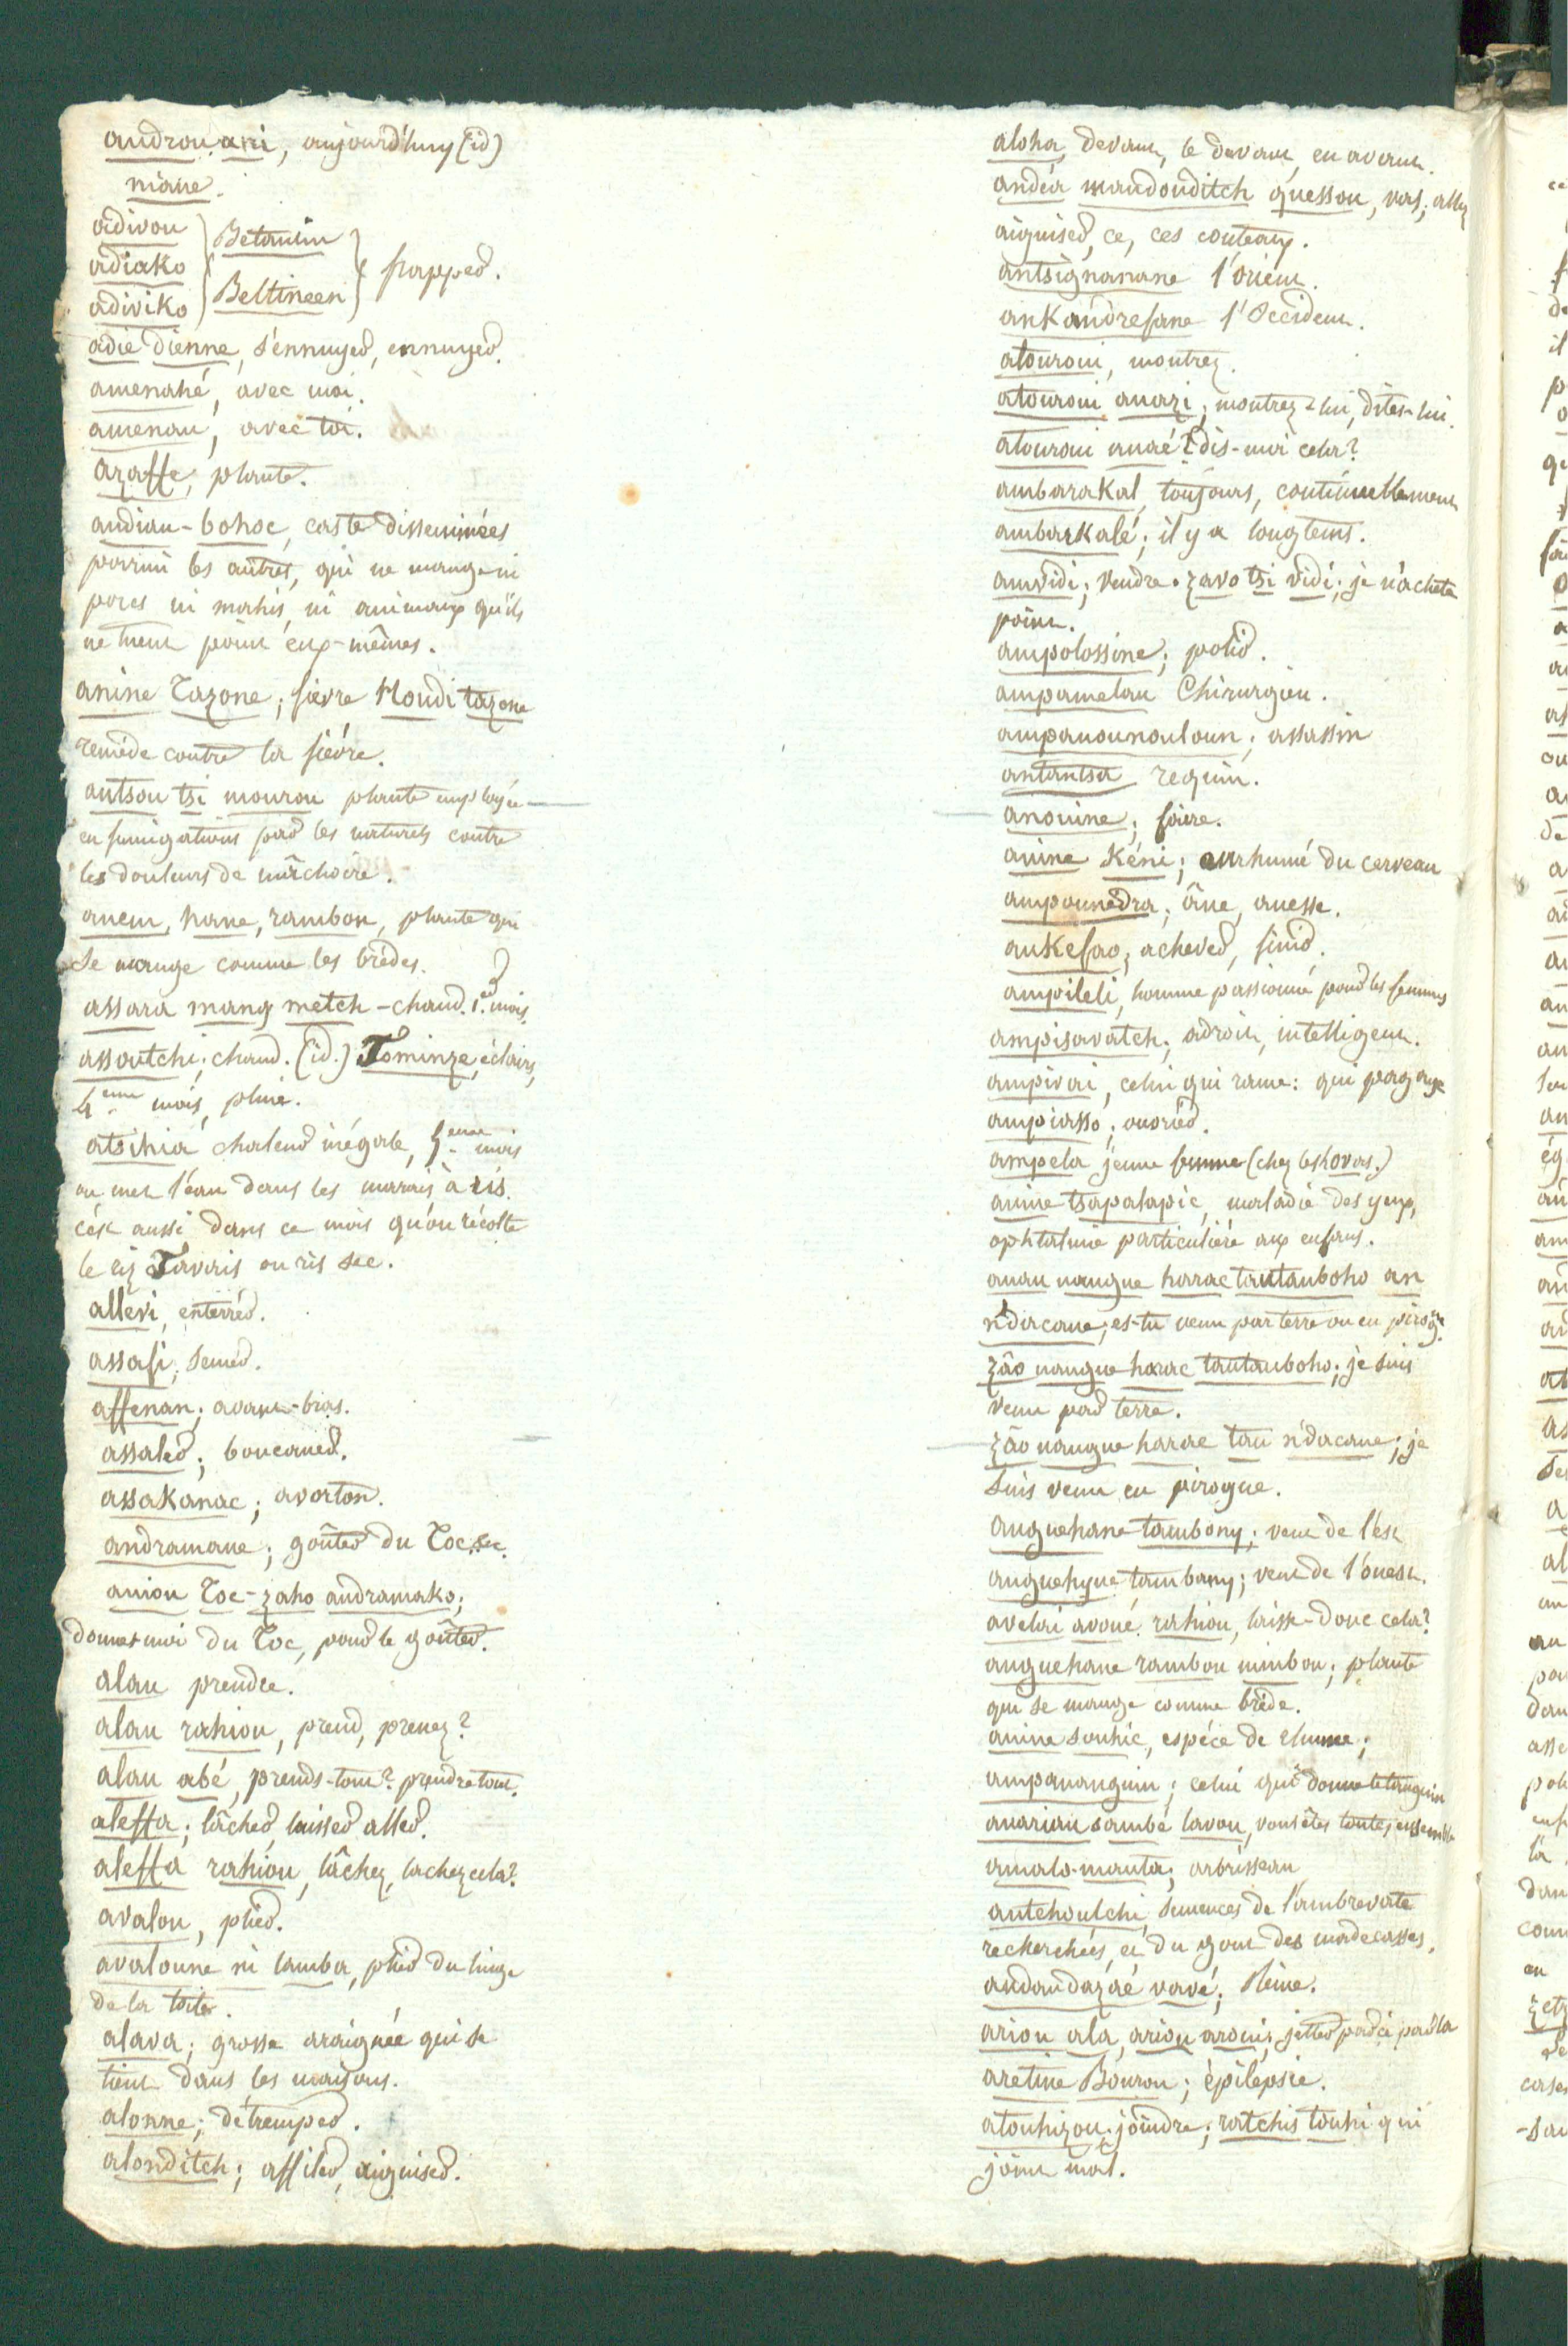 androu ani, aujourd'huy (id)
niane.
adivou
adiako
adiviko
Betanim
Beltineen
frapper.
adie dienne, s'ennuyer, ennuyer.
amenahé, avec moi.
amenau, avec toi.
azaffe, plante.
andian-bohoc, caste disseminées
parmi les autres, qui ne mange ni
porcs ni mahis, ni animaux qu'ils
ne tuent point eux-mêmes.
anine Tazone; fièvre Moudi tazone
remède contre la fièvre.
antsou tsi mourou plante employée
en fumigations par les naturels contre
les douleurs de mâchoire.
anem, hane, rambou, plante qui
se mange comme les brèdes.
assara mang metch - chaud. 1.er mois.
assoutchi; chaud. (id.) Tominze, éclairs,
4.eme mois, pluie.
atsihia chaleur inégale, 5.eme mois
on met l'eau dans les marais à ris.
c'est aussi dans ce mois qu'on récolte
le riz Tavais ou ris sec.
allevi, enterrér.
assafi, semér.
affenan; avant-bras.
assaler; boucaner.
assakanac; avorton.
andramane; goûter du Toc &c.
aniou Toc-zaho andramako;
donnes moi du Toc, pour le goûter.
alau prendre.
alau rahiou, prend, prenez?
alau abé, prends-tout? prendre tout.
aleffa; lâcher, laisser aller.
aleffa rahiou, lâchez, lachez cela?
avalou, plier.
avaloune ni lamba, plier du linge
de la toile.
alava; grosse araignée qui se
tient dans les maisons.
alonne; détremper.
alonditch; affiler, aiguiser.
aloha, devant, le devant, en avant.
andéa mandouditch quessou, vas; allez
aiguiser, ce, ces couteaux.
antsignanane l'orient.
ankandrefane l'Occident.
atouroui, montrez.
atouroui anazi; montrez-lui, dites-lui.
atouroui anaé? dis-moi cela?
ambarakal, toujours, continuellement
ambarkalé; il y a longtems.
amvidi; vendre. zavo tsi vidi; je n'achete
point.
ampolossine; polir.
ampamelau Chirurgien.
ampanounouloun; assassin
antantsa requin.
anouine; foire.
anine Kéni; enrhumé du cerveau
ampounedra; âne, anesse.
ankefao; achever, finir.
ampileli, homme passionné pour les femmes
ampisavatch; adroit, intelligent.
ampivoi, celui qui rame: qui pagaye
ampiasso; ouvrier.
ampela jeune femme (chez les hovas.)
anine tsapalapic, maladie des yeux,
ophtalmie particulière aux enfans.
anau nangue harac tautauboho an
n'dacane; es-tu venu par terre ou en pirog.
zâo nangue harac tautauboho; je suis
venu par terre.
zâo nangue harac tau n'dacane; je
suis venu en pirogue.
anguehane tambony; vent de l'est
anguehyne tambany; vent de l'ouest.
avelai avoué rahiou, laisse-donc cela?
anguehane rambou mimbou; plante
qui se mange comme brède.
anine souhic, espèce de rhume;
ampananguin; celui qui donne le tanguin
anariau sambé lavou, vous êtes toutes ensemble
amalo-manta; arbrisseau
antchoutchi, semences de l'ambrevate
recherchées, et du gout des madecasses.
andaudazaé vavé; Reine.
ariou ala, ariou arouï; jetter par ci par là
aretine Bourou; épilepsie.
atouhizou; joindre; ratchis touhi qui
joint mal.